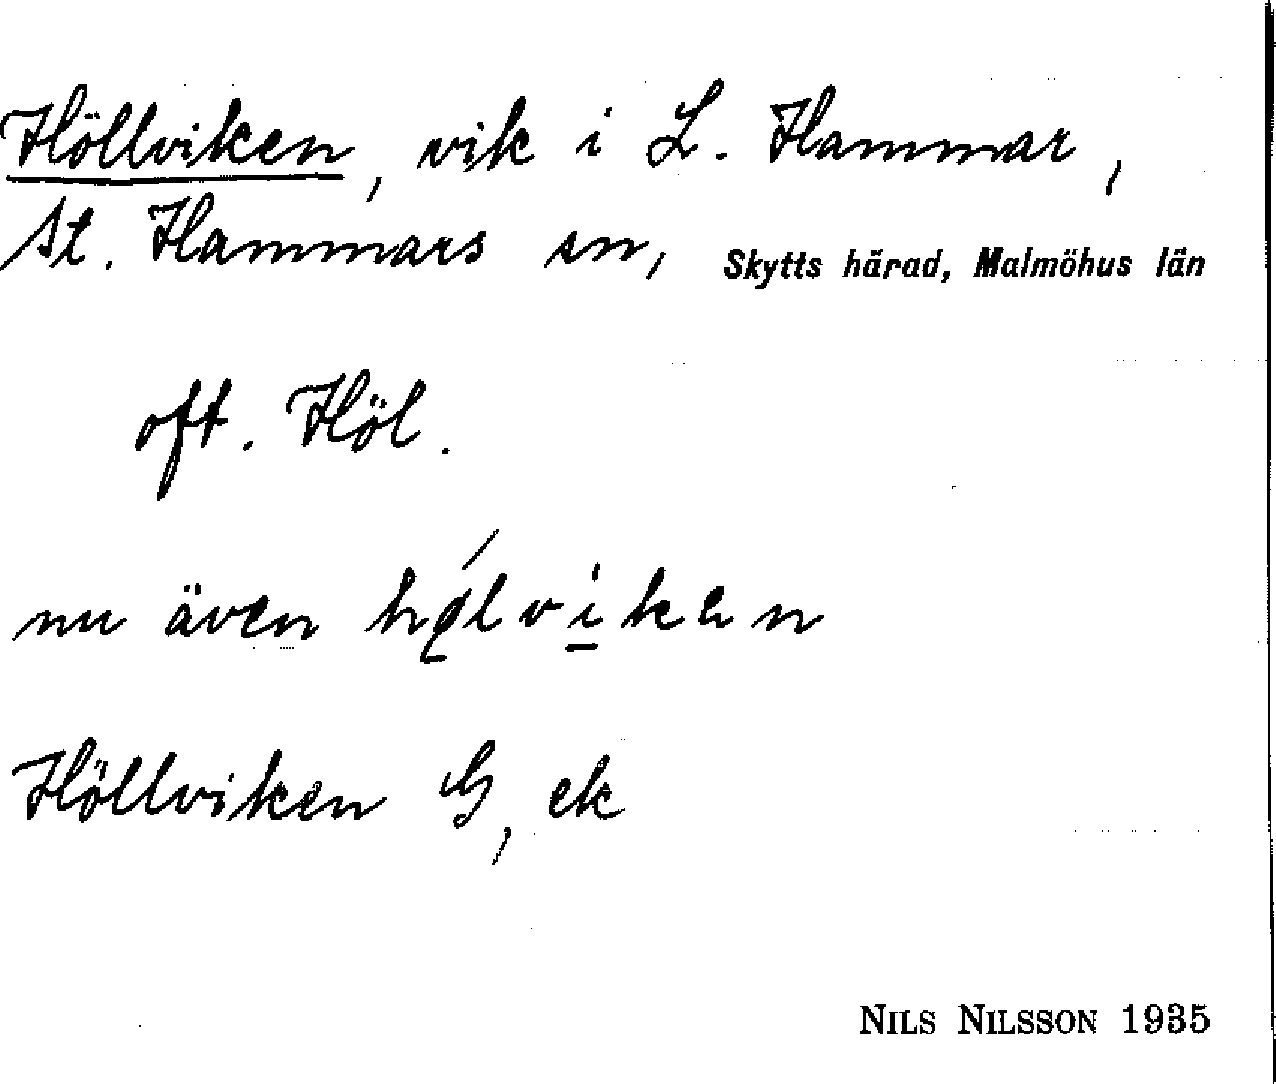 Höllviken, vik i L. Hammar,
St. Hammars sn, Skytts härad, Malmöhus län
oft. Höl.
nu även hǫ́lvikən
Höllviken G, ek
NILS NILSSON 1935